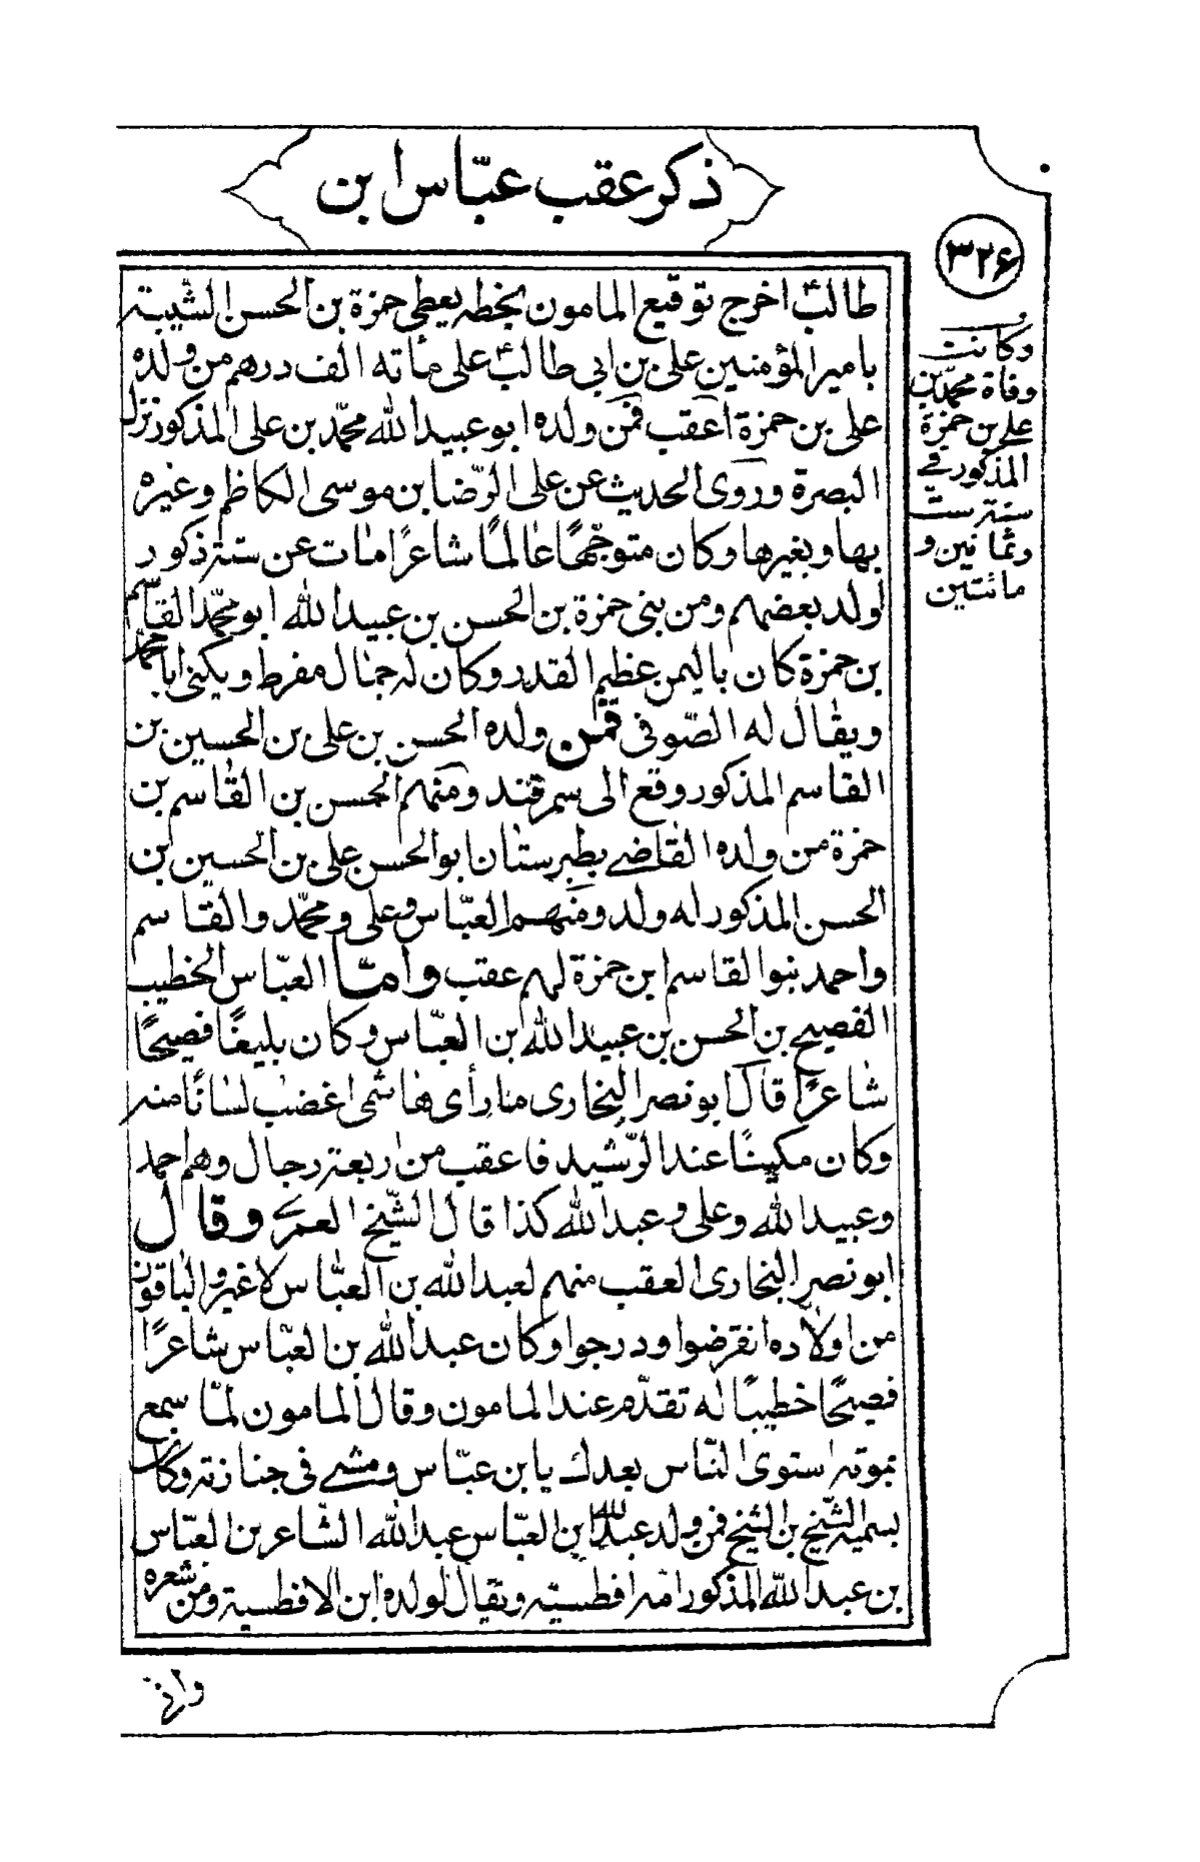 ذكر عقب عبّاس ابن
٣٢۶
طالبؑ اخرج توقيع المامون بخطه يعطى حمزة بن الحسن الشّبيه
بامير المؤمنين على بن ابى طالبؑ على مائه الف درهم من ولده
على بن حمزة اعقب فمن ولده ابو عبيد الله محمّد بن على المذكور نزل
البصرة وروى الحديث عن على الرّضا بن موسى الكاظم وغيره
بها وبغيرها وكان متوجّهًا عالمًا شاعرًا مات عن ستة ذكور
اولد بعضهم ومن بنى حمزة بن الحسن بن عبيد الله ابو محمّد القاسم
بن حمزة كان باليمن عظيم القدر وكان له جمال مفرط ويكنى ابا محمّد
ويقال له الصّوفى فمن ولده الحسن بن على بن الحسين بن
القاسم المذكور وقع الى سمرقند ومنهم الحسن بن القاسم بن
حمزة من ولده القاضے بطبرستان ابو الحسن على بن الحسين بن
الحسن المذكور له ولد ومنهم العبّاس وعلى ومحمّد والقاسم
واحمد بنو القاسم ابن حمزة لهم عقب وامّا العبّاس الخطيب
الفصيح بن الحسن بن عبيد الله بن العبّاس وكان بليغًا فصيحًا
شاعرًا قال ابو نصر البخارى ما رأى هاشمى اغضب لسانًا منه
وكان مكينًا عند الرّشيد فاعقب من اربعة رجال وهم احمد
وعبيد الله وعلى وعبد الله كذا قال الشّيخ العمرے وقال
ابو نصر البخارى العقب منهم لعبد الله بن العبّاس لاغير والباقون
من اولاده انقرضوا ودرجوا وكان عبد الله بن العبّاس شاعرًا
فصيحًا خطيبًا له تقدّم عند المامون وقال المامون لمّا سمع
بموته استوى النّاس بعدك يا بن عبّاس ومشے فى جنازته وكان
يسميه الشّيخ بن الشيخ فمن ولد عبد الله بن العبّاس عبد الله الشّاعر بن العبّاس
بن عبد الله المذكور امّه افطسيّة ويقال لولده ابن الافطسية ومن شعره
وكانت
وفاة محمّد بن
على بن حمزة
المذكور فى
سنة ست
وثمانين و
مائتين
وانى